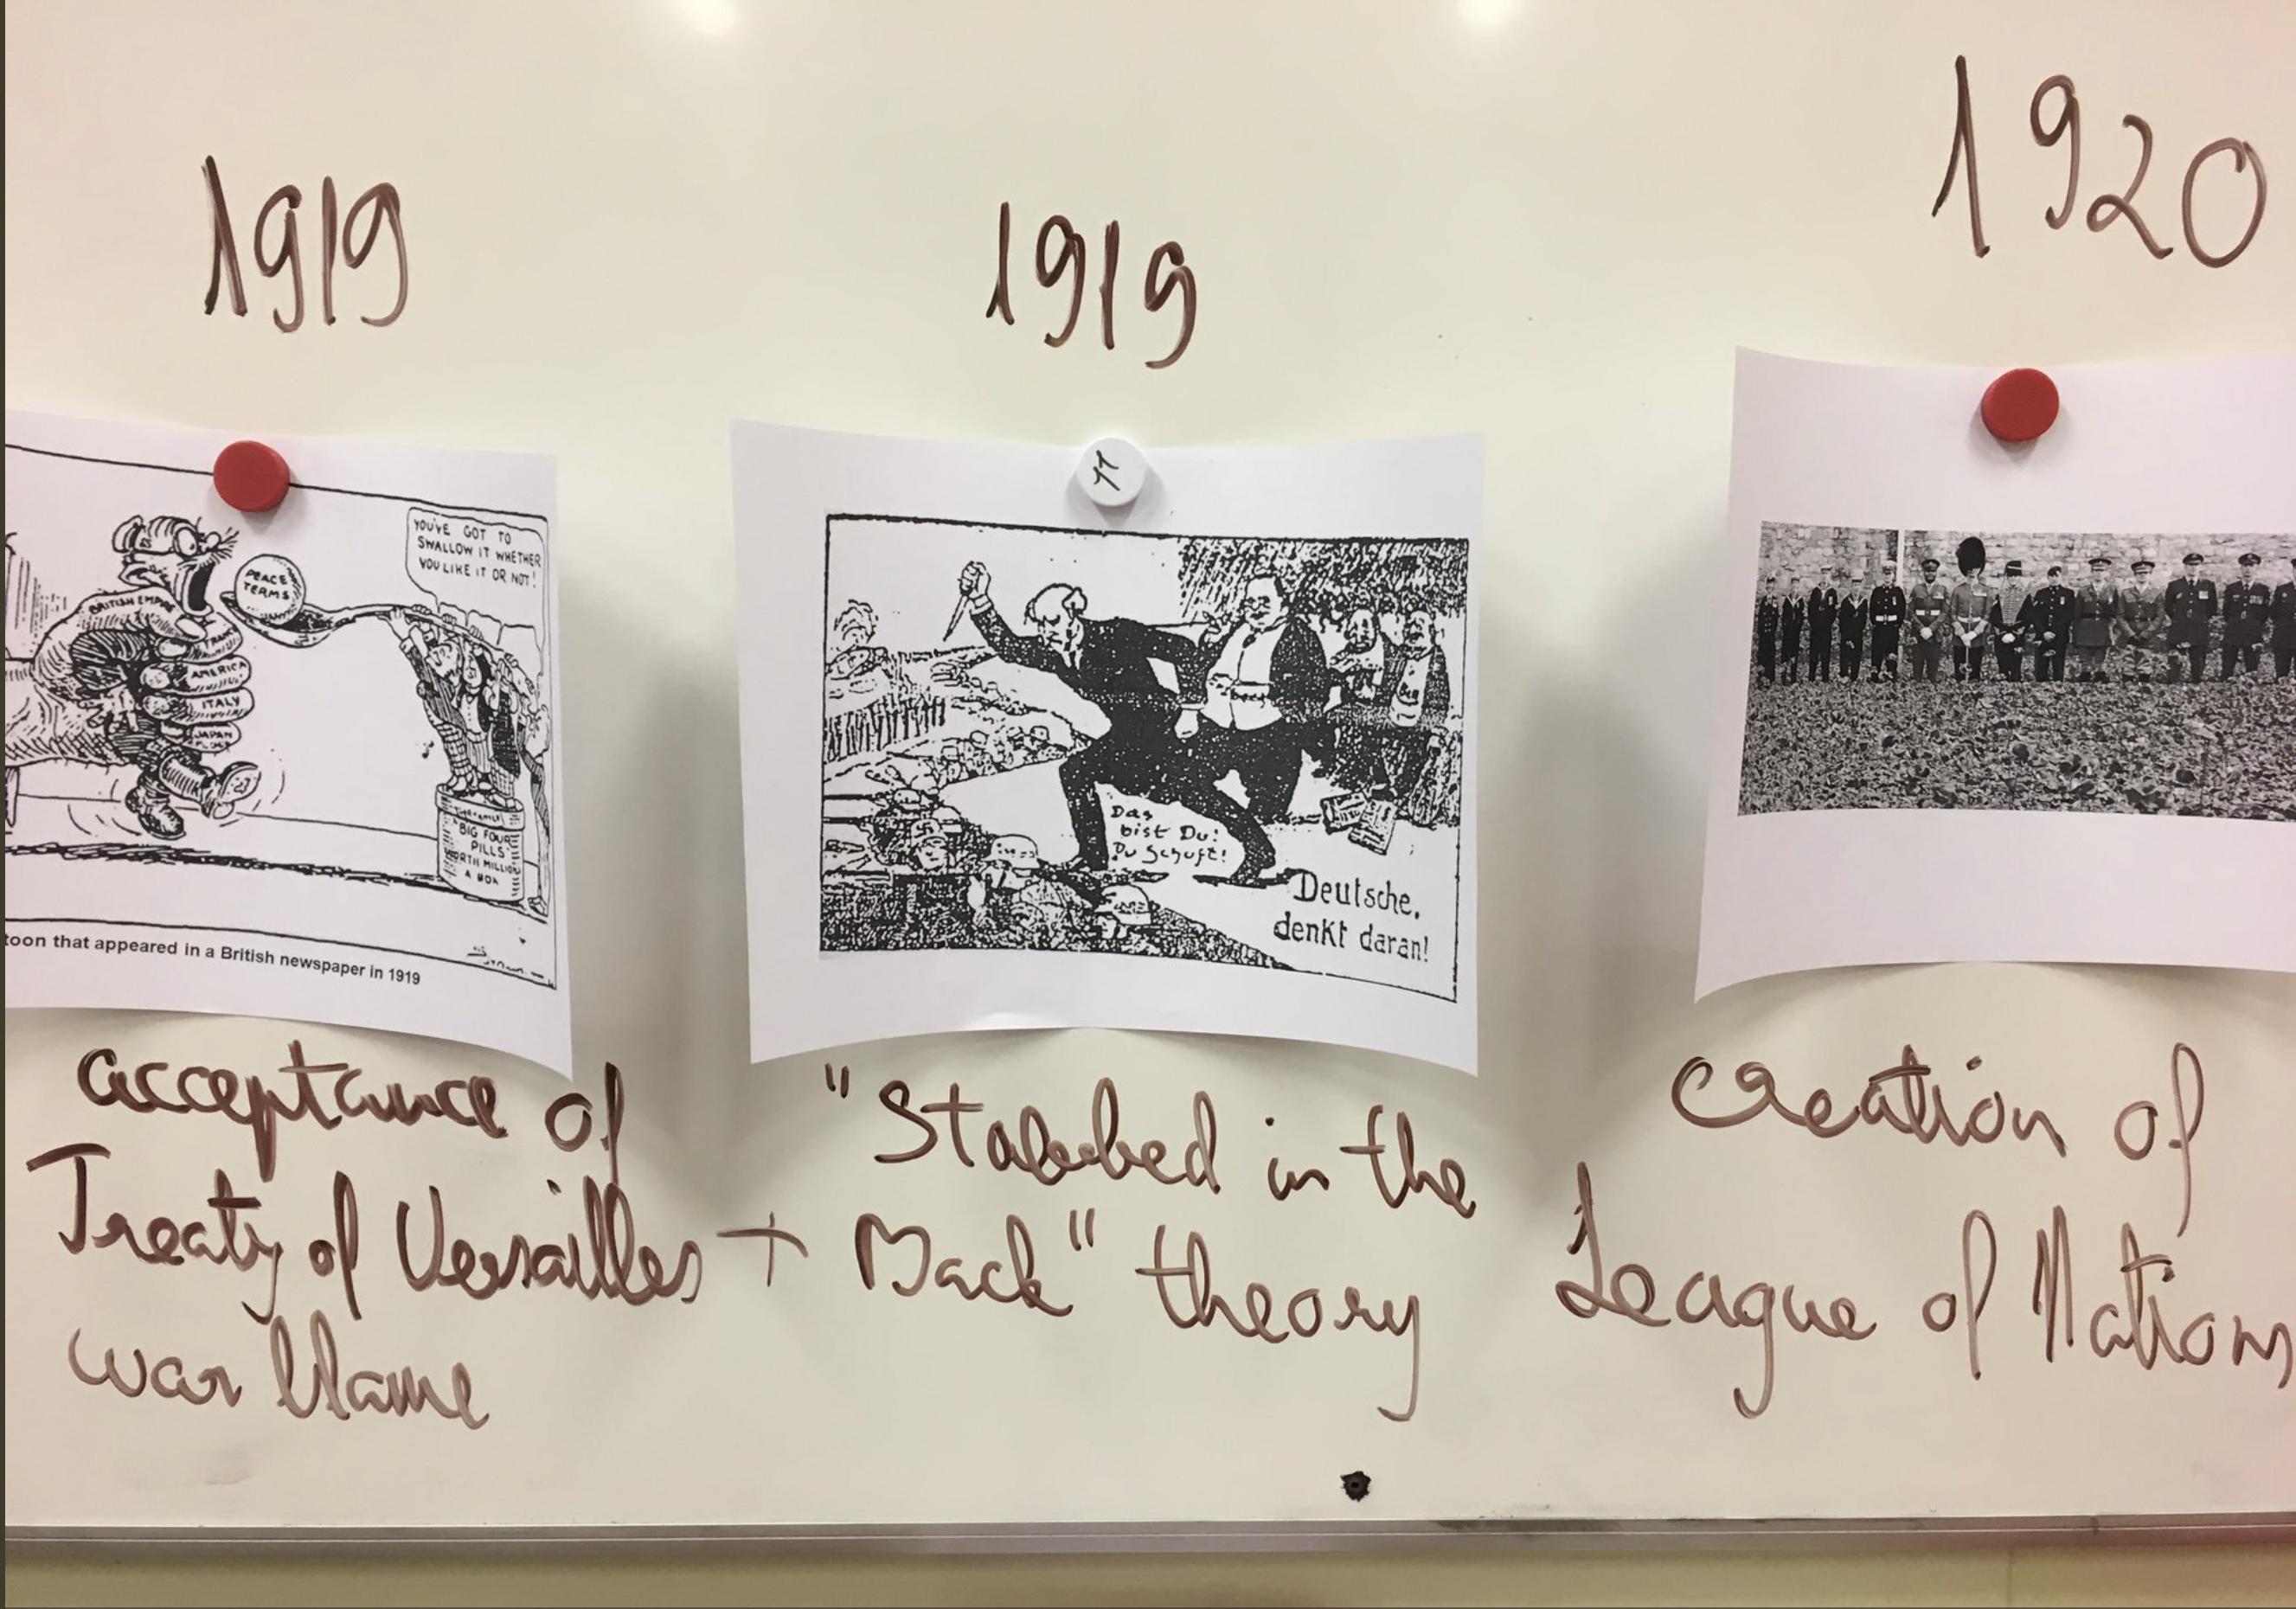 1919
1919
1920
YOU'VE GOT TO
SWALLOW IT WHETHER
YOU LIKE IT OR NOT!
PEACE
TERMS
BRITISH EMPIRE
FRANCE
AMERICA
ITALY
JAPAN
BIG FOUR
PILLS
WORTH MILLION
A BOX
toon that appeared in a British newspaper in 1919
11
Das
bist Du!
Du Schuft!
Deutsche,
denkt daran!
acceptance of
Treaty of Versailles +
war blame
"Stabbed in the
Back" theory
Creation of
League of Nations